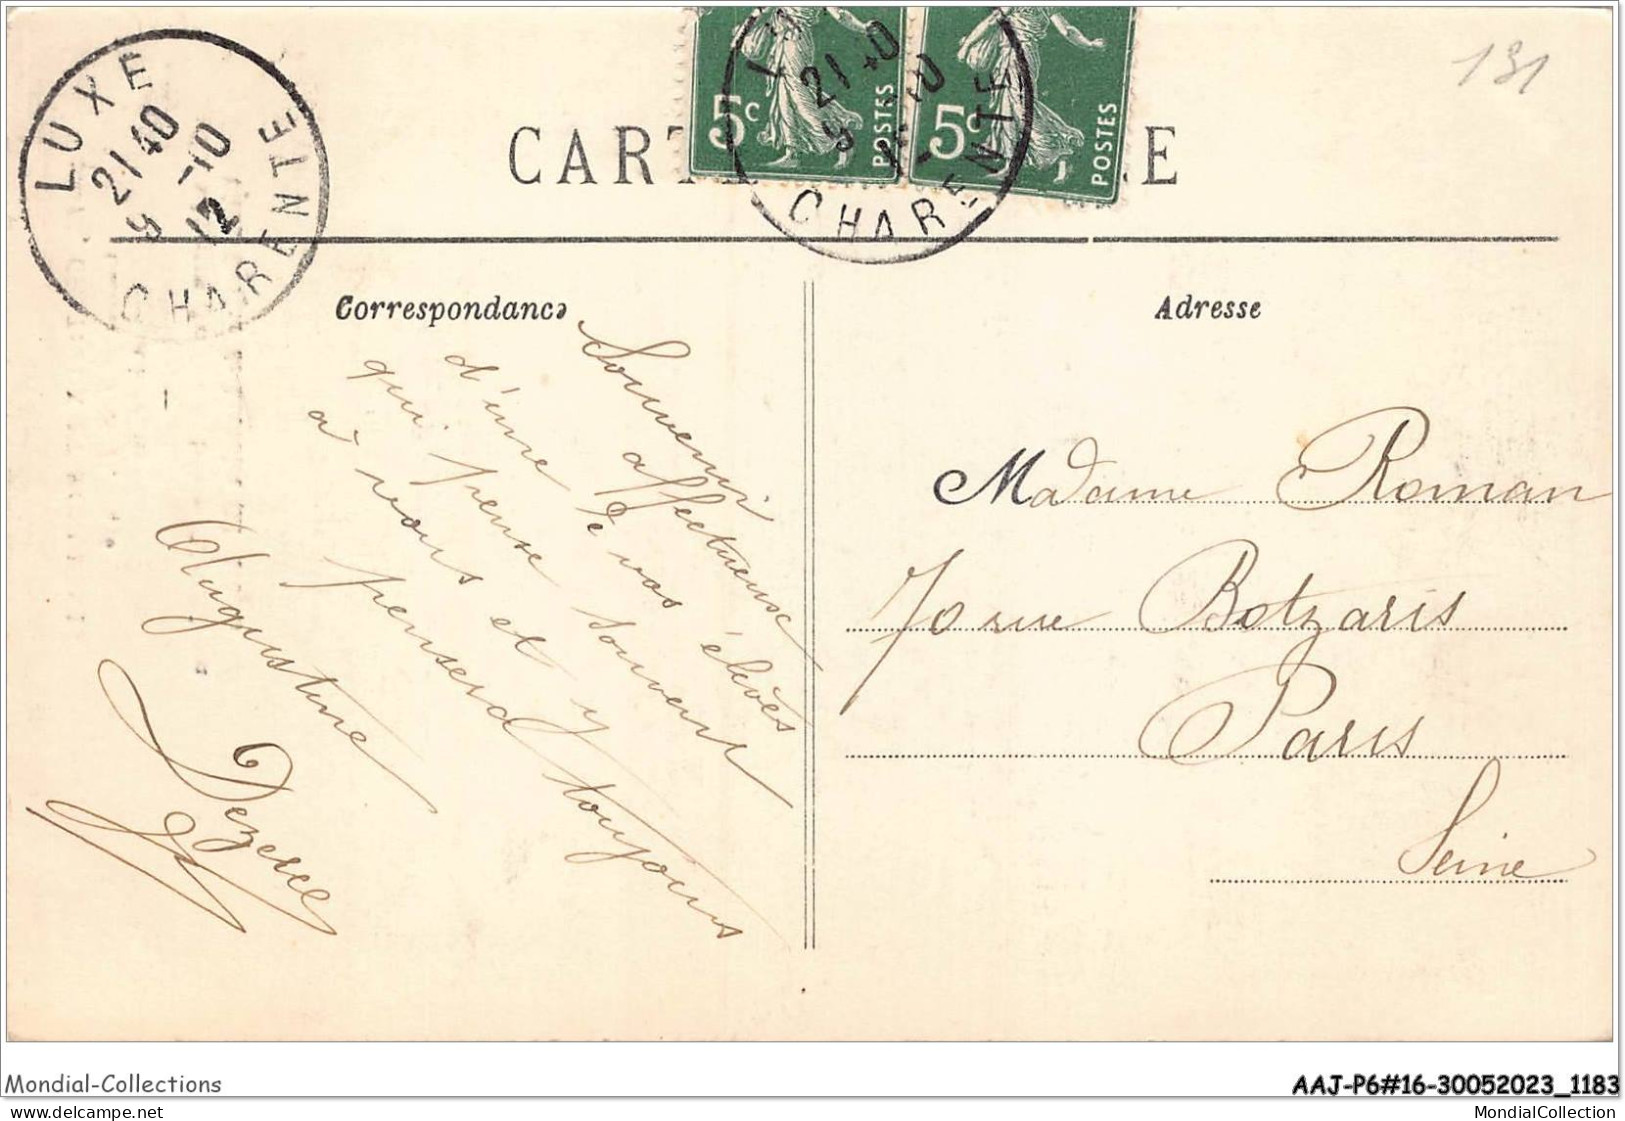 131
LUXE
21 40
9 -10
12
CHARENTE
5c POSTES
5c POSTES
21 40
9 -10
CHARENTE
CARTE
Correspondance
Souvenir
affectueuse
d'une de vos élèves
qui pense souvent
à vous et y
pensera toujours
Augustine
Adresse
Madame Roman
70 rue Botzaris
Paris
Seine
Mondial-Collections
AAJ-P6#16-30052023_1183
MondialCollection